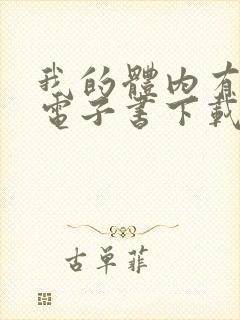 我的體內有
電子書下載
古單菲